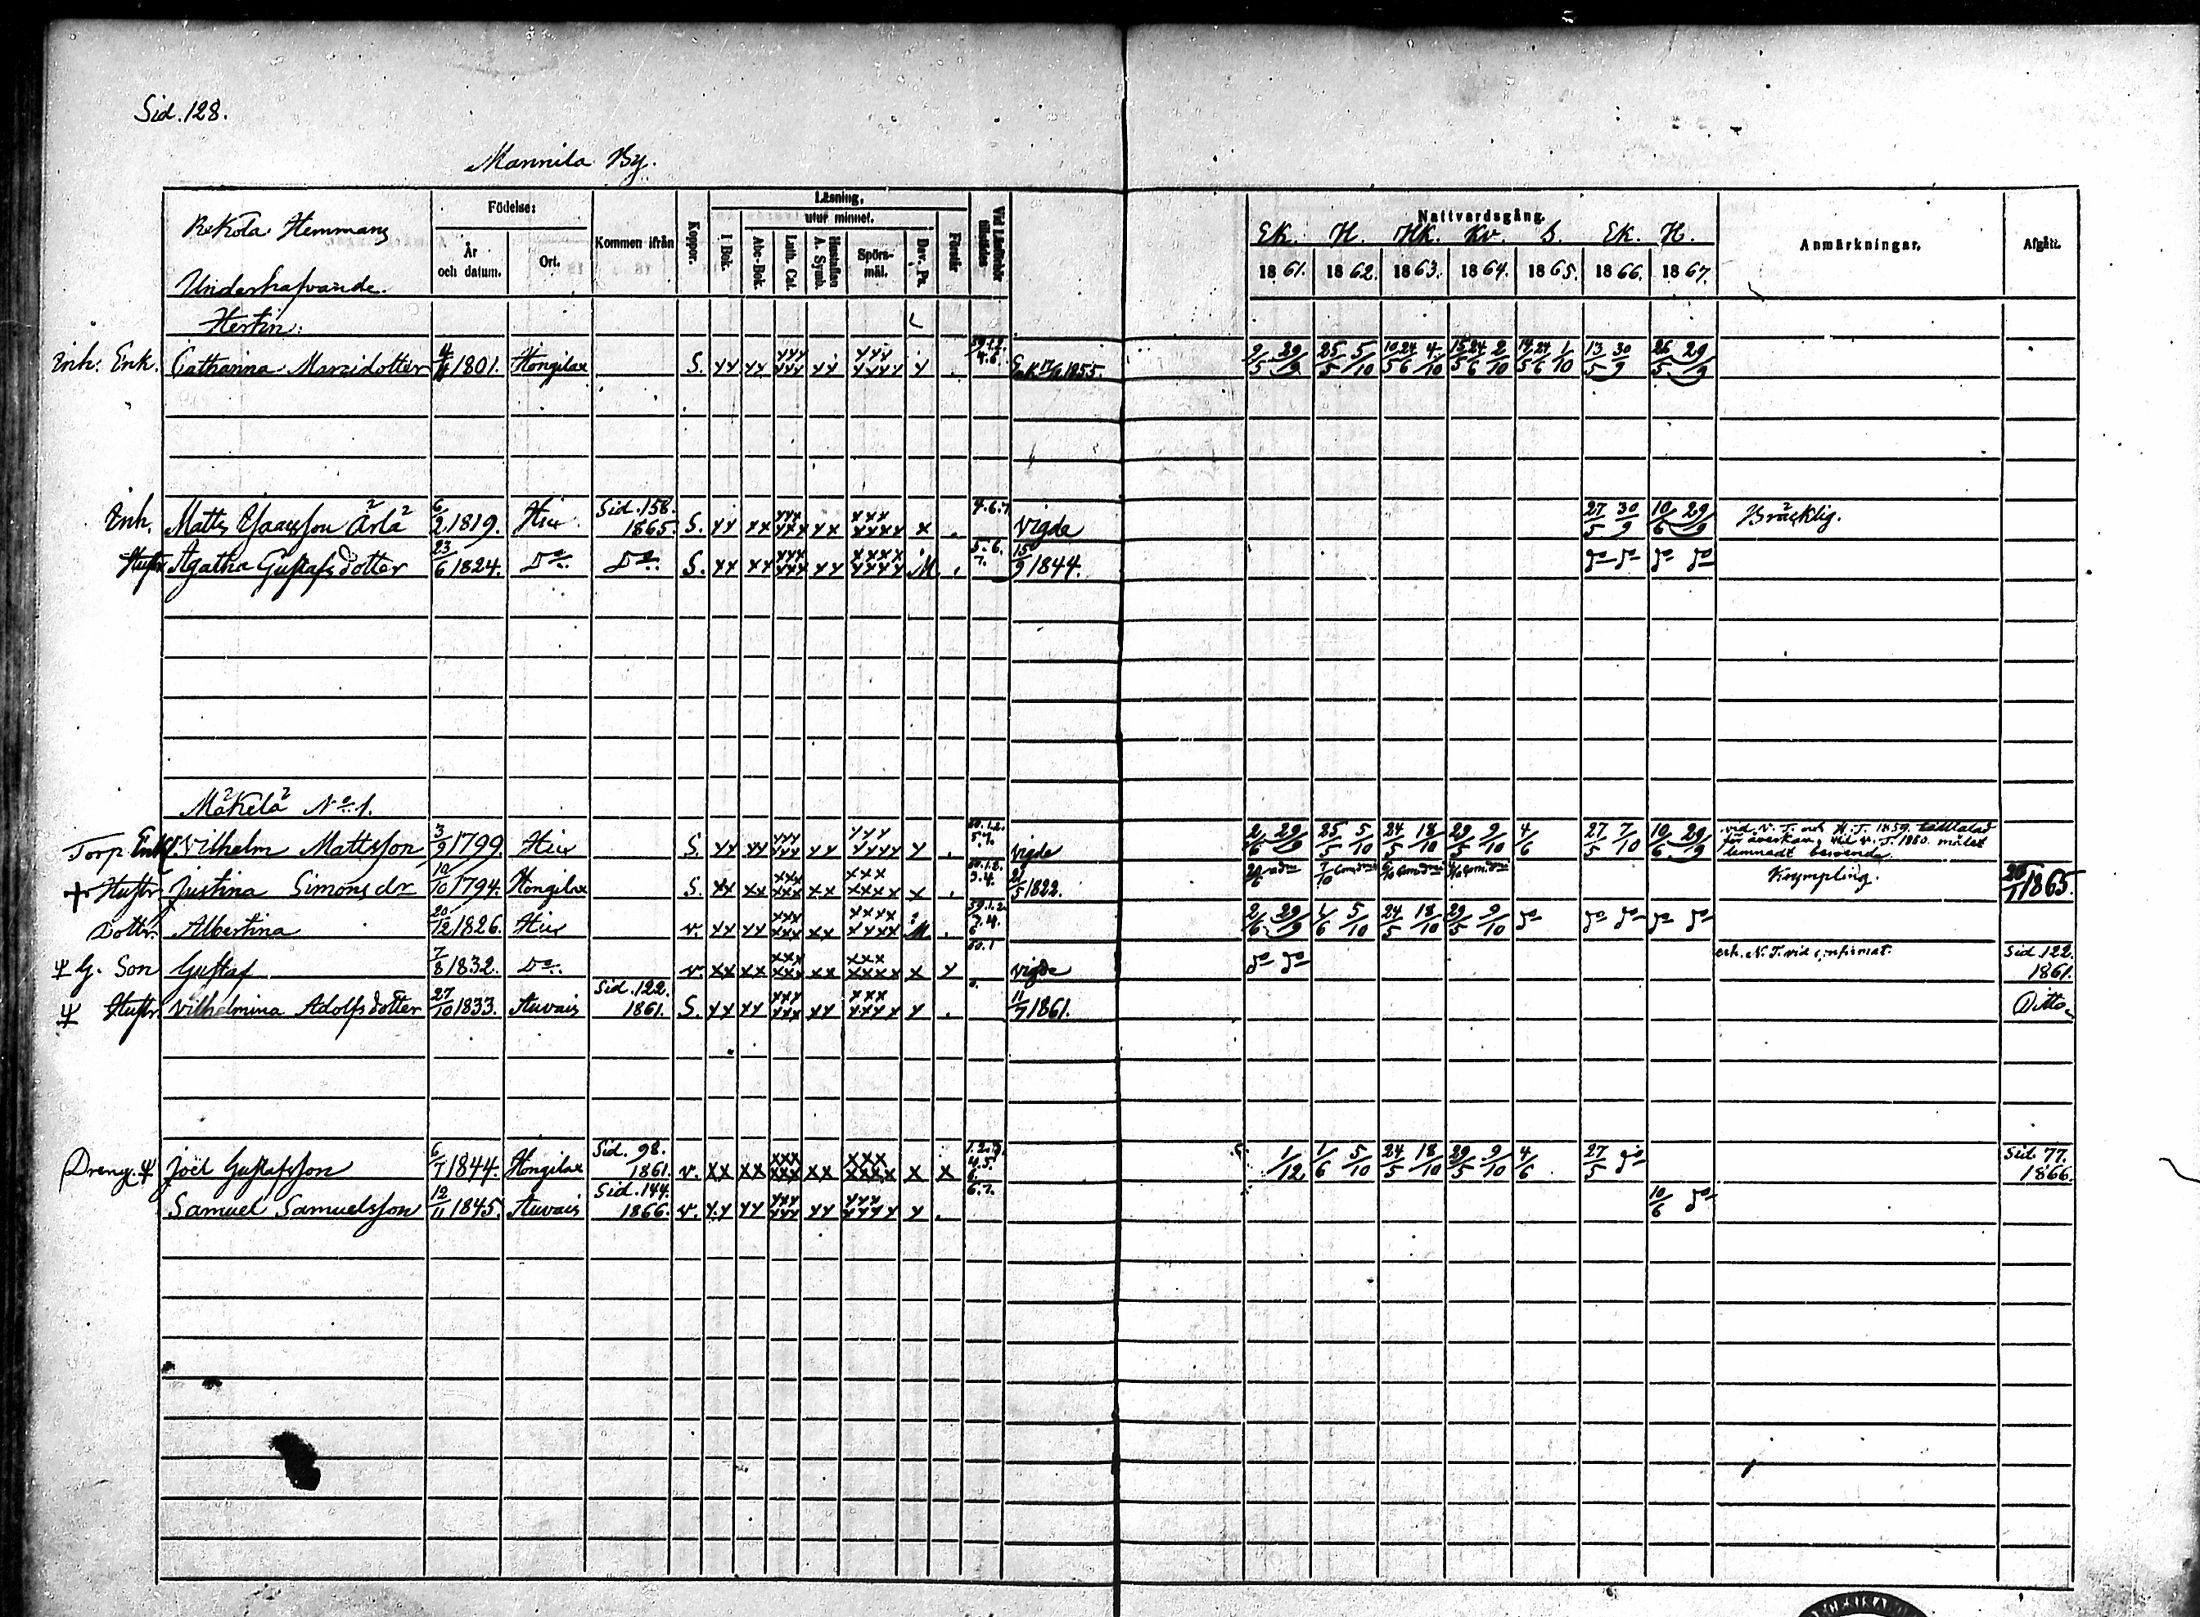 Sid. 128.
Mannila By.
Rekola Hemmans
Underhafvande.
Födelse:
År och datum.
Ort.
Kommen ifrån
Koppor.
Läsning,
utur minnet.
I Bok.
Abc-Bok.
Luth. Cat.
Hustaflan A. Symb.
Spörs-mål.
Dav. Ps.
Förstår
Vid Läsförhör tillstädes
Nattvardsgång.
Ek. H. Hk. Kv. S. Ek. H.
1861. 1862. 1863. 1864. 1865. 1866. 1867.
Anmärkningar.
Afgått.
Inh. Enk. Catharina 1801. Hongilax S. xx xx xxx xxx xx xxx xxxx x 1855. 2/5 29/9 25/5 5/10 10/5 24/6 4/10 15/5 24/6 2/10 14/5 24/6 1/10 13/5 30/9 26/5 29/9
Sid. 158.
Inh. Matts Isaacsson Ärlä 6/2 1819. Här 1865. S. xx xx xxx xxx xx xxx xxxx x Vigde 27/5 30/9 10/6 29/9 Bräcklig.
Hustr. Agatha Gustafsdotter 23/6 1824. Do Do S. xx xx xxx xxx xx xxxx xxxx M 15/9 1844. do do do do
Mäkelä No 1.
Torp. Enkl. Vilhelm Mattsson 3/9 1799. Här S. xx xx xxx xxx xx xxx xxxx x Vigde 2/6 29/9 25/5 5/10 24/5 18/10 29/5 9/10 4/6 27/5 7/10 10/6 29/9 vid V. T. och H. T. 1859. tilltalad
för åverkan, vid V. T. 1860. målet
lemnadt beroende.
† Hustr. Justina Simonsdr 10/10 1794. Hongilax S. xx xx xxx xxx xx xxx xxxx x 21/5 1822. Krympling. 1865.
Dotter. Albertina 20/12 1826. Här v. xx xx xxx xxx xx xxxx xxxx M 2/6 29/9 1/6 5/10 24/5 18/10 29/5 9/10 do do do do do
G. Son Gustaf 7/8 1832. Do v. xx xx xxx xxx xx xxx xxxx x x Vigde do do Sid. 122.
1861.
Sid. 122.
Hustr. Vilhelmina Adolfsdotter 27/10 1833. Auvais 1861. S. xx xx xxx xxx xx xxx xxxx x 11/7 1861. Ditto
Sid. 98.
Dreng. Joël Gustafsson 6/7 1844. Hongilax 1861. v. xx xx xxx xxx xx xxx xxxx x x 1/12 1/6 5/10 24/5 18/10 29/5 9/10 4/6 27/5 do Sid. 77.
1866.
Sid. 144.
Samuel Samuelsson 12/11 1845. Auvais 1866. v. xx xx xxx xxx xx xxx xxxx x 10/6 do